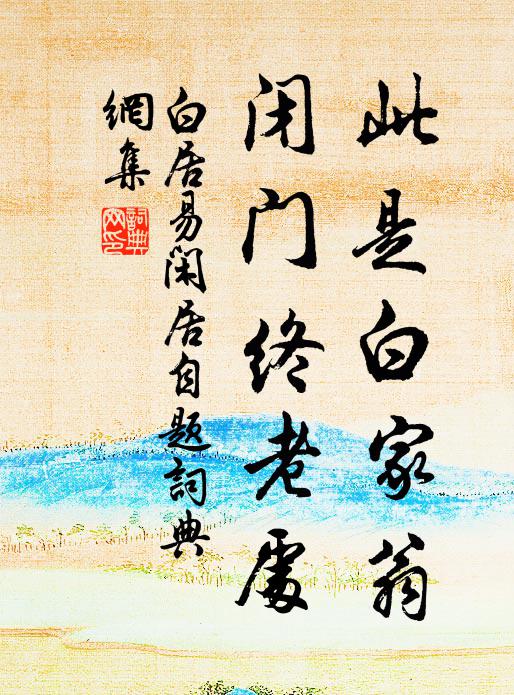 此是白家翁
闭门终老處
白居易閑居自题詞典
網集
詞典
网印